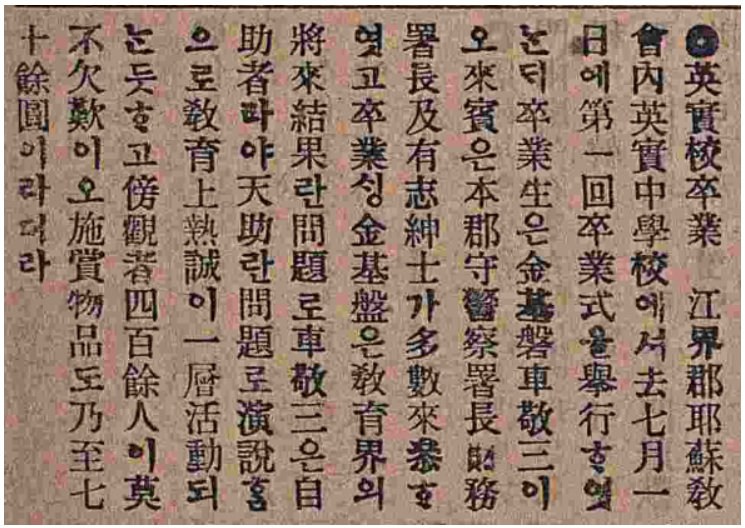 ◉英實校卒業 江界郡耶蘇敎
會內英實中學校에셔去七月一
日에第一回卒業式을擧行ᄒᆞ엿
ᄂᆞᆫᄃᆡ卒業生은金基磐車敬三이
오來賓은本郡守警察署長財務
署長及有志紳士가多數來參ᄒᆞ
엿고卒業싱金基盤은敎育界의
將來結果란問題로車敬三은自
助者라야天助란問題로演說ᄒᆞᆷ
으로敎育上熱誠이一層活動되
ᄂᆞᆫ듯ᄒᆞ고傍觀者四百餘人이莫
不欠歎이오施賞物品도乃至七
十餘圓이라더라